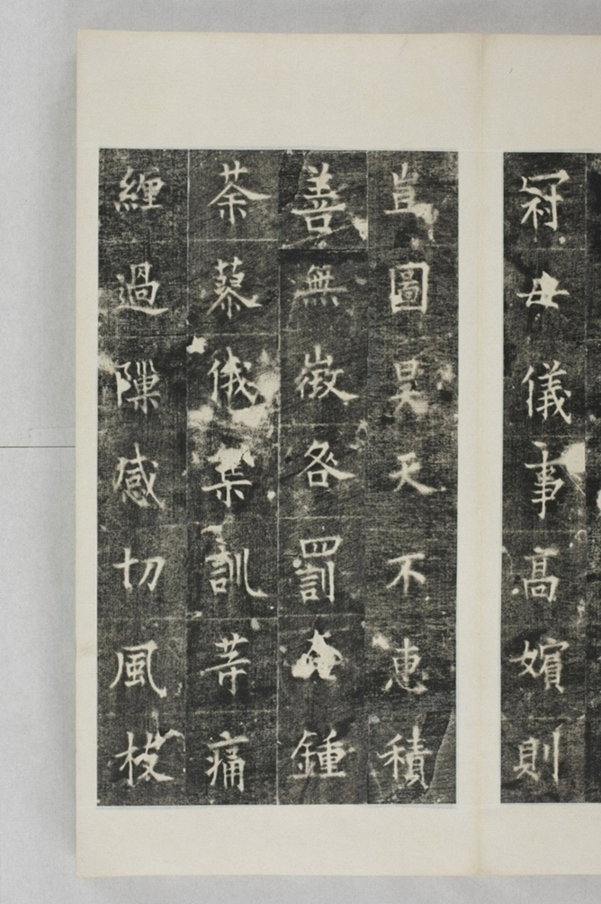 冠母儀事高嬪則
豈圖昊天不惠積
善無徴咎罰鍾
荼蓼俄集訓茀痛
纏過隟感切風枝